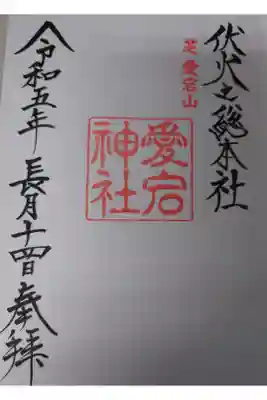 伏火之總本社
芝 愛宕山
愛宕
神社
令和五年 長月十四日 奉拝